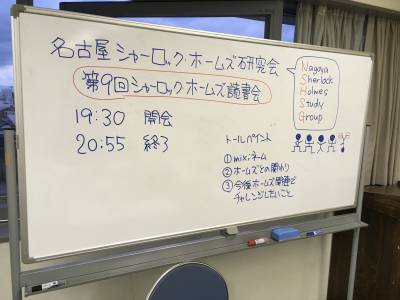 名古屋シャーロック・ホームズ研究会
Nagoya
Sherlock
Holmes
Study
Group
第9回シャーロック・ホームズ読書会
19:30 開会
20:55 終了
トールペイント
①mixiネーム
②ホームズとの関わり
③今後ホームズ関連で
チャレンジしたいこと